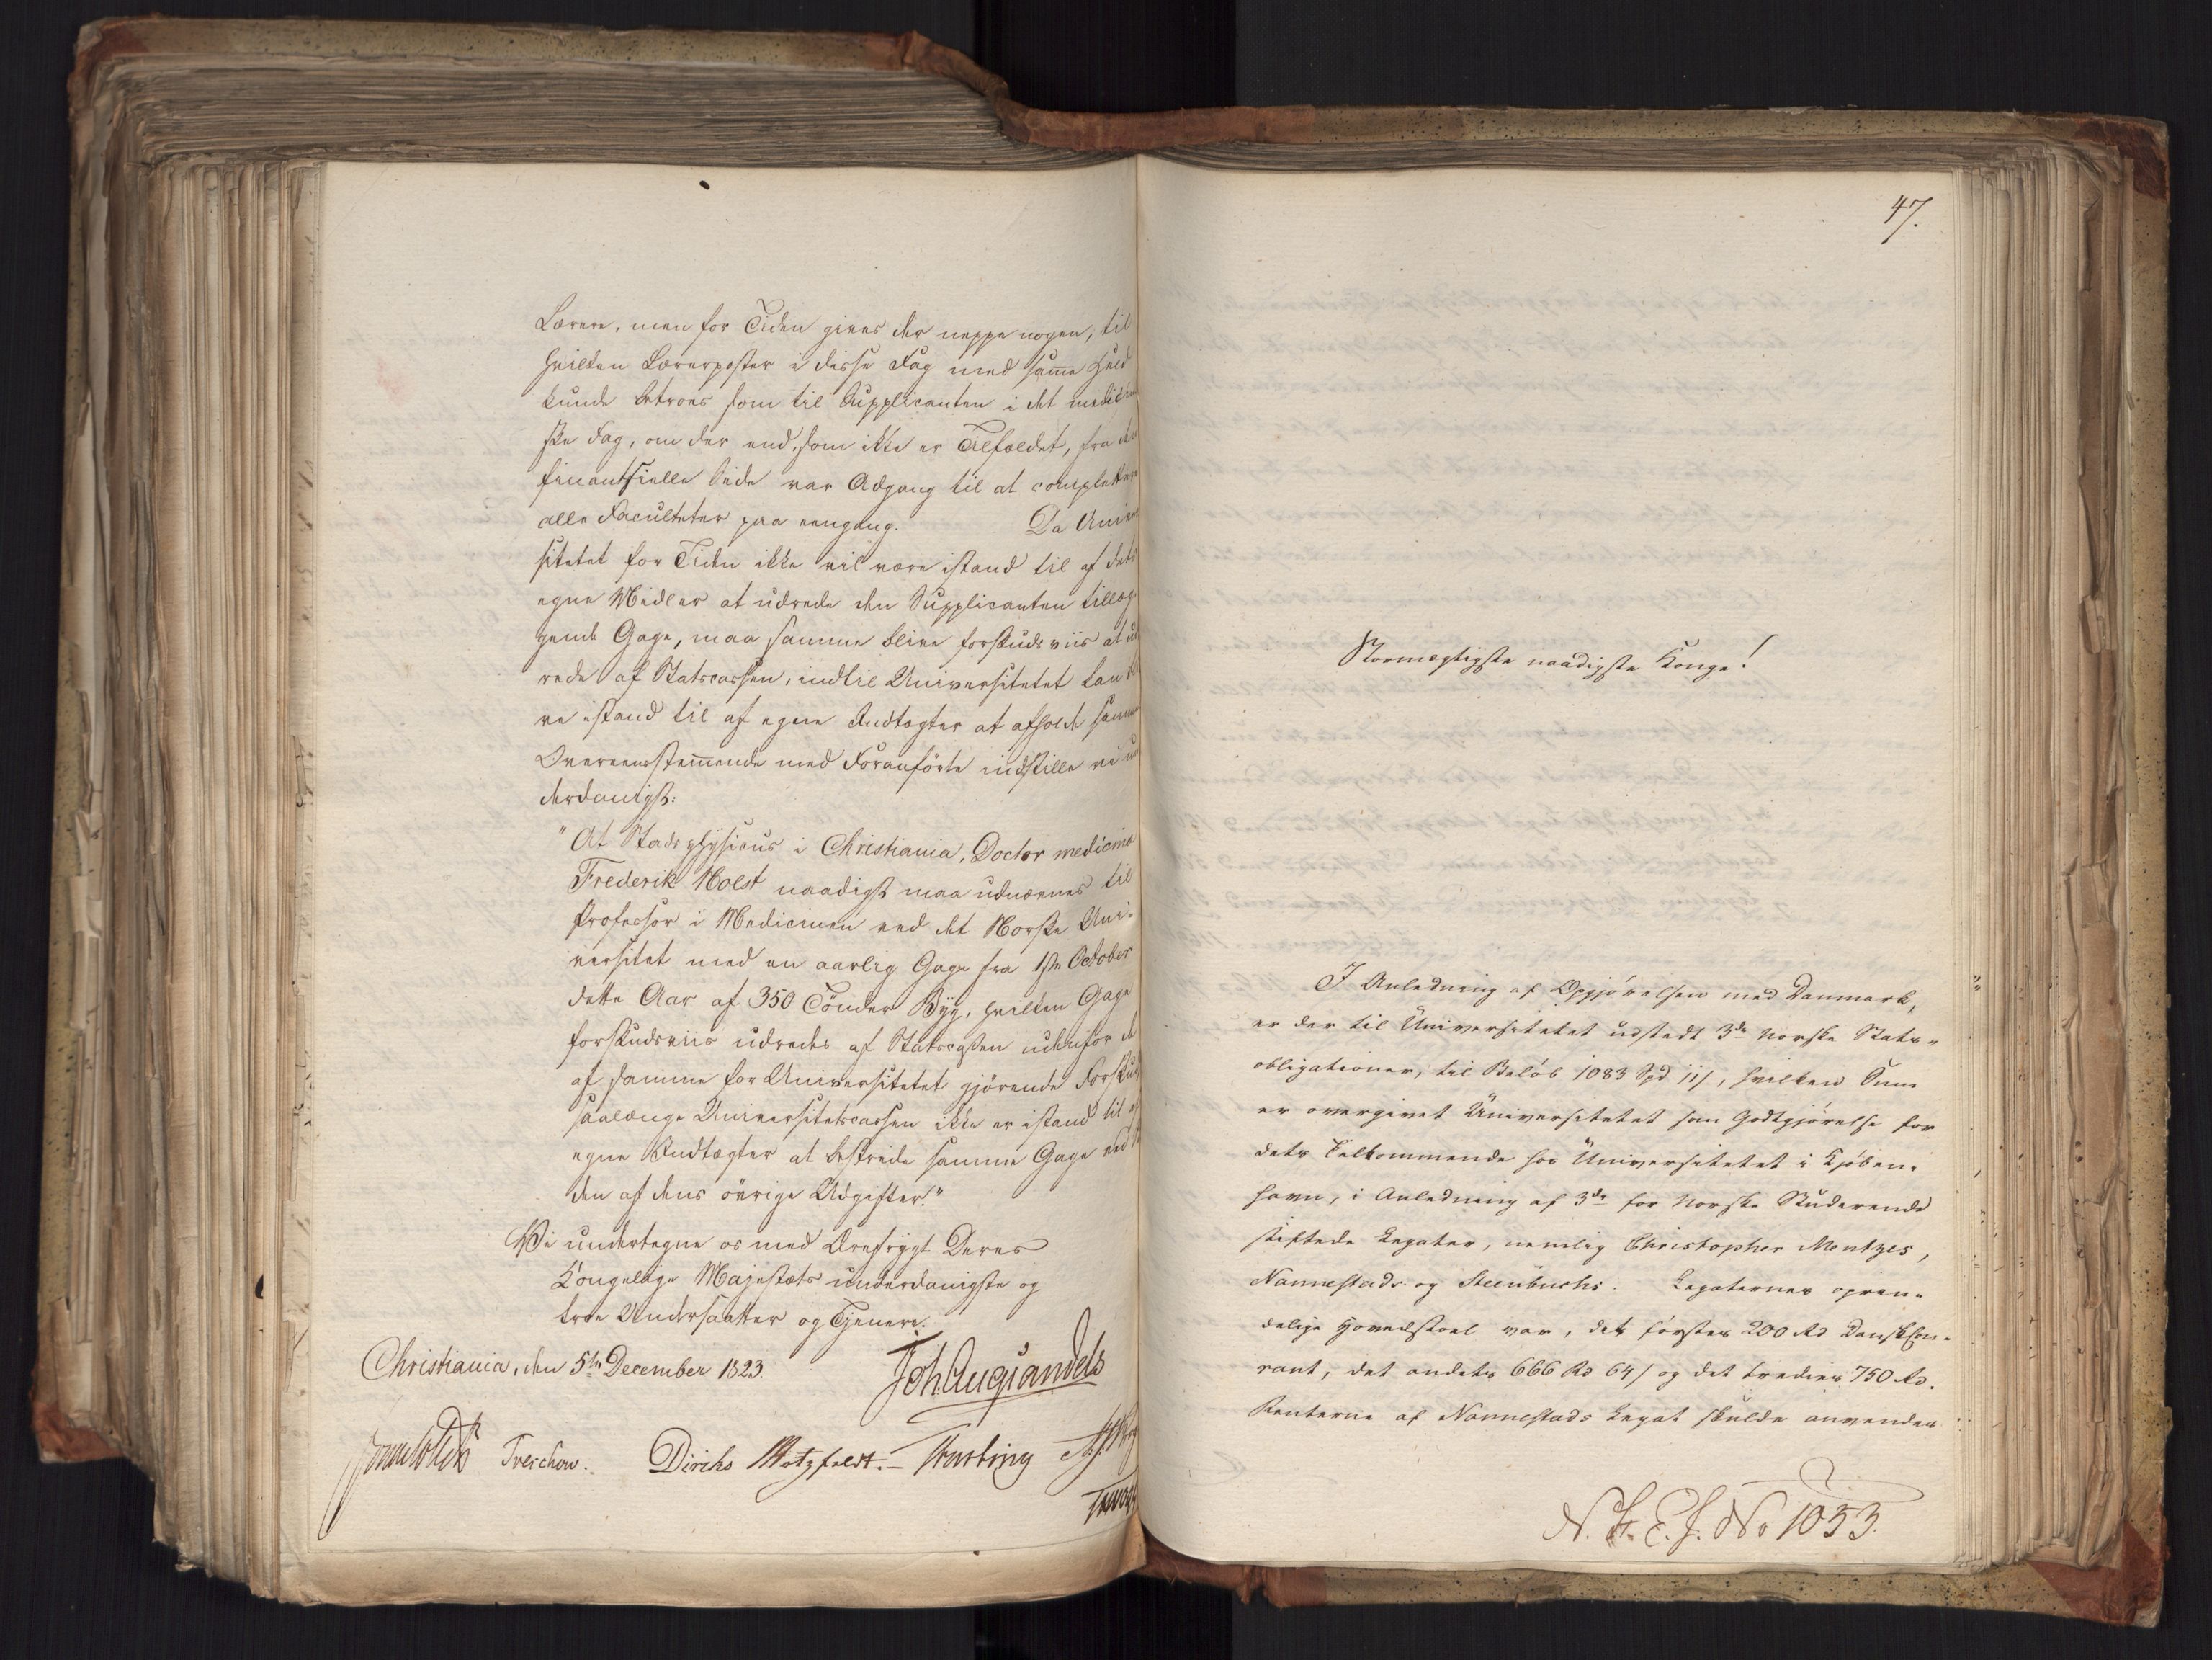 Lærere, men for Tiden gives der neppe nogen, til
hvilken Lærerposter i disse Fag med samme Held
kunde betroes som til Supplicanten i det medicin
ske Fag, om der end, som ikke er Tilfældet, fra den
finantsielle Side var Adgang til at complettere
alle Faculteter paa eengang. Da Univer
sitetet for Tiden ikke vil være istand til af dets
egne Midler at udrede den Supplicanten tillæg-
gende Gage, maa samme blive forskudsviis at ud
rede af Statscassen, indtil Universitetet kan bli
ve istand til af egne Indtægter at afholde samme
Overeensstemmende med Foranførte indstille vi un
derdanigst:
"At Stadsphysicus i Christiania, Doctor medicinæ
Frederik Holst naadigst maa udnævnes til
Professor i Medicinen ved det Norske Uni-
versitet med en aarlig Gage fra 1ste October
dette Aar af 350 Tönder Byg, hvilken Gage
forskudsviis udredes af Statscassen udenfor de
af samme for Universitetet gjörende Forskud
saalænge Universitetscassen ikke er istand til af
egne Indtægter at bestride samme Gage ved Si
den af dens övrige Udgifter."
Vi undertegne os med Ærefrygt Deres
Kongelige Majestæts underdanigste og
troe Undersaatter og Tjenere.
Christiania, den 5te December 1823.
Joh. Aug. Sandels
Sommerhielm Treschow. Diriks Motzfeldt. Fasting
47.
Stormægtigste naadigste Konge!
I Anledning af Opgjörelsen med Danmark,
er der til Universitetet udstedt 3de norske Stats-
obligationer, til Belöb 1083 Spd 11/, hvilken Sum
er overgivet Universitetet som Godtgjörelse for
dets Tilkommende hos Universitetet i Kjöben-
havn, i Anledning af 3de for norske Studerende
stiftede Legater, nemlig Christopher Mentzes,
Nannestads og Steenbuchs. Legaternes oprin-
delige Hovedstoel var, det förstes 200 Rd Dansk Cou-
rant, det andets 666 Rd 64/ og det tredies 750 Rd.
Renterne af Nannestads Legat skulde anvendes
N. St. E. J. No 1053.